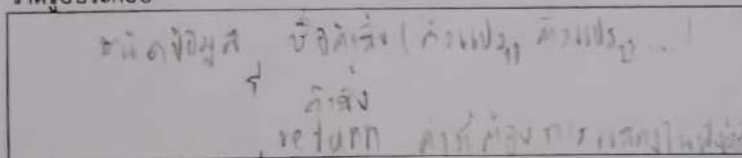 ชนิดข้อมูล ชื่อคำสั่ง (ตัวแปร1, ตัวแปร2 ...)
{
คำสั่ง
return ค่าที่ต้องการแสดงใน